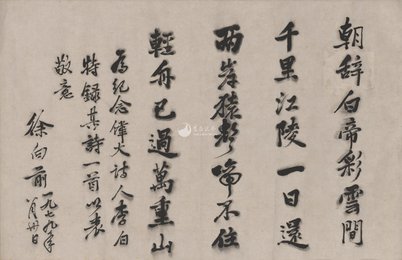 朝辞白帝彩雲間
千里江陵一日還
两岸猿声啼不住
輕舟已過萬重山
为紀念偉大詩人李白
特録其詩一首以表
敬意
徐向前
一九七九年